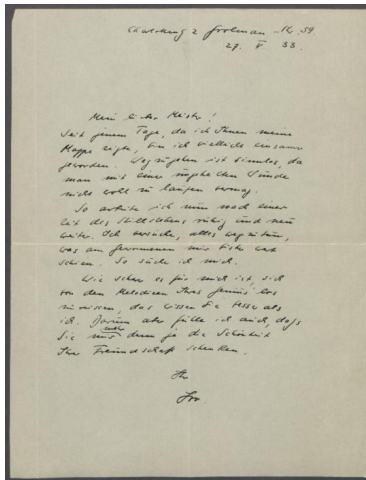 Charlottenburg 2 Grolman Str. 59
27. V 33.
Mein lieber Meister!
Seit jenem Tage, da ich Ihnen meine
Mappe zeigte, bin ich vielleicht einsamer
geworden. Wegzugehen ist sinnlos, da
man mit einer ungeheilten Wunde
nicht wohl zu laufen vermag.
So arbeite ich nun nach einer
Zeit des Stillstehens ruhig und neu
weiter. Ich versuche, alles wegzutun,
was am gewonnenen mir bisher wert
schien. So suche ich mich.
Wie schwer es für mich ist, sich
von den Melodien Ihres Genius' los
zu reissen, das wissen Sie besser als
ich. Darum aber fühle ich auch, dass
Sie mir mehr denn je die Schönheit
Ihrer Freundschaft schenken.
Ihr